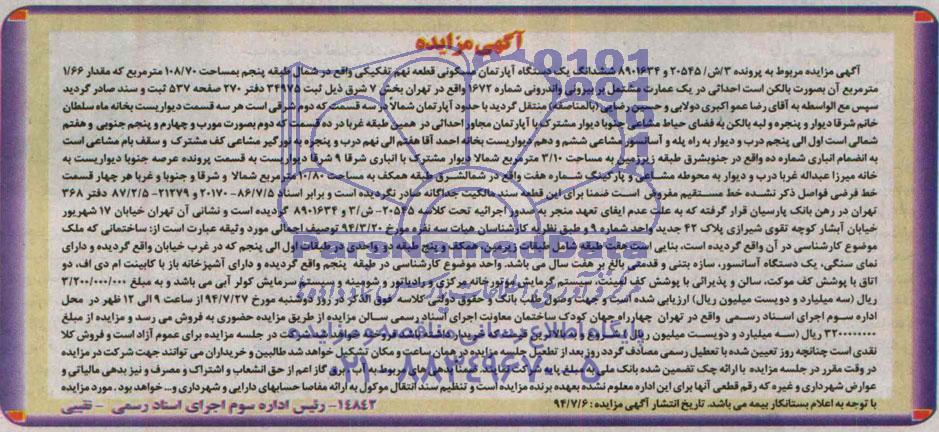 آگهی مزایده
آگهی مزایده مربوط به پرونده ۳/ش/ ۲۰۵۴۵ و ۸۹۰۱۶۳۴ ششدانگ یک دستگاه آپارتمان مسکونی قطعه نهم تفکیکی واقع در شمال طبقه پنجم بمساحت ۱۰۸/۷۰ مترمربع که مقدار ۱/۶۶
مترمربع آن بصورت بالکن است احداثی در یک عمارت مشتمل بر بیرونی واندرونی شماره ۱۶۷۲ واقع در تهران بخش ۷ شرق ذیل ثبت ۳۴۹۷۵ دفتر ۲۷۰ صفحه ۵۳۷ ثبت و سند صادر گردید
سپس مع الواسطه به آقای رضا عمو اکبری دولابی و حسین رضایی (بالمناصفه) منتقل گردید با حدود آپارتمان شمالاً در سه قسمت که دوم شرقی است هر سه قسمت دیواریست بخانه ماه سلطان
خانم شرقا دیوار و پنجره و لبه بالکن به فضای حیاط مشاعی جنوبا دیوار مشترک با آپارتمان مجاور احداثی در همین طبقه غربا در ده قسمت که دوم بصورت مورب و چهارم و پنجم جنوبی و هفتم
شمالی است اول الی پنجم درب و دیوار به راه پله و آسانسور مشاعی ششم و دهم دیواریست بخانه احمد آقا هفتم الی نهم درب و پنجره به نورگیر مشاعی کف مشترک و سقف بام مشاعی است
به انضمام انباری شماره ده واقع در جنوبشرق طبقه زیرزمین به مساحت ۳/۱۰ مترمربع شمالا دیوار مشترک با انباری شرقا ۹ شرقا دیواریست به قسمت پرونده عرصه جنوبا دیواریست به
خانه میرزا عبداله غربا درب و دیوار به محوطه مشاعی و پارکینگ شماره هفت واقع در شمالشرق طبقه همکف به مساحت ۱۰/۸۰ مترمربع شمالا و شرقا و جنوبا و غربا هر چهار قسمت
خط فرضی فواصل ذکر نشده خط مستقیم مفروض است ضمنا برای این قطعه سند مالکیت جداگانه صادر نگردیده است و برابر اسناد ۸۶/۷/۵-۲۰۱۷۰ و ۲۱۲۷۹-۸۷/۲/۵ دفتر ۳۶۸
تهران در رهن بانک پارسیان قرار گرفته که به علت عدم ایفای تعهد منجر به صدور اجرائیه تحت کلاسه ۲۰۵۴۵-ش/۳ و ۸۹۰۱۶۳۴ گردیده است و نشانی آن تهران خیابان ۱۷ شهریور
خیابان آبشار کوچه تقوی شیرازی پلاک ۴۲ جدید واحد شماره ۹ و طبق نظریه کارشناسان هیات سه نفره مورخ ۹۴/۳/۲۰ توصیف اجمالی مورد وثیقه عبارت است از: ساختمانی که ملک
موضوع کارشناسی در آن واقع گردیده است، بنایی است هفت طبقه شامل طبقات زیرزمین، همکف و پنج طبقه دو واحدی در طبقات اول الی پنجم که در غرب خیابان واقع گردیده و دارای
نمای سنگی، یک دستگاه آسانسور، سازه بتنی و قدمتی بالغ بر هفت سال می باشد. واحد موضوع کارشناسی در طبقه پنجم واقع گردیده و دارای آشپزخانه باز با کابینت ام دی اف، دو
اتاق با پوشش کف موکت، سالن و پذیرائی با پوشش کف لمینت، سیستم گرمایش موتورخانه مرکزی و رادیاتور و شومینه و سیستم سرمایش کولر آبی می باشد و به مبلغ ۳/۲۰۰/۰۰۰/۰۰۰
ریال (سه میلیارد و دویست میلیون ریال) ارزیابی شده است و جهت وصول طلب بانک و حقوق دولتی کلاسه فوق الذکر در روز دوشنبه مورخ ۹۴/۷/۲۷ از ساعت ۹ الی ۱۲ ظهر در محل
اداره سوم اجرای اسناد رسمی واقع در تهران چهارراه جهان کودک ساختمان معاونت اجرای اسناد رسمی سالن مزایده از طریق مزایده حضوری به فروش می رسد و مزایده از مبلغ
۳۲۰۰۰۰۰۰۰۰ ریال (سه میلیارد و دویست میلیون ریال) شروع و به بالاترین قیمت که خریدار داشته باشد فروخته خواهد شد شرکت در جلسه مزایده برای عموم آزاد است و فروش کلا
نقدی است چنانچه روز تعیین شده با تعطیل رسمی مصادف گردد روز بعد از تعطیل جلسه مزایده در همان ساعت و مکان تشکیل خواهد شد طالبین و خریداران می توانند جهت شرکت در مزایده
در وقت مقرر در جلسه مزایده با ارائه چک تضمین شده بانک ملی به مبلغ پایه شرکت نمایند. ضمنا بدهی های مربوط به آب، برق گاز اعم از حق انشعاب و اشتراک و مصرف و نیز بدهی مالیاتی و
عوارض شهرداری و غیره که رقم قطعی آنها برای این اداره معلوم نشده بعهده برنده مزایده است و تنظیم سند انتقال موکول به ارائه مفاصا حسابهای دارایی و شهرداری و... خواهد بود . مورد مزایده
با توجه به اعلام بستانکار بیمه می باشد. تاریخ انتشار آگهی مزایده : ۹۴/۷/۶
۱۴۸۴۲- رئیس اداره سوم اجرای اسناد رسمی - نقیبی
ParsNamadData
پایگاه اطلاع رسانی مناقصه و مزایده
۰۲۱-۸۸۳۴۹۶۷۰-۵